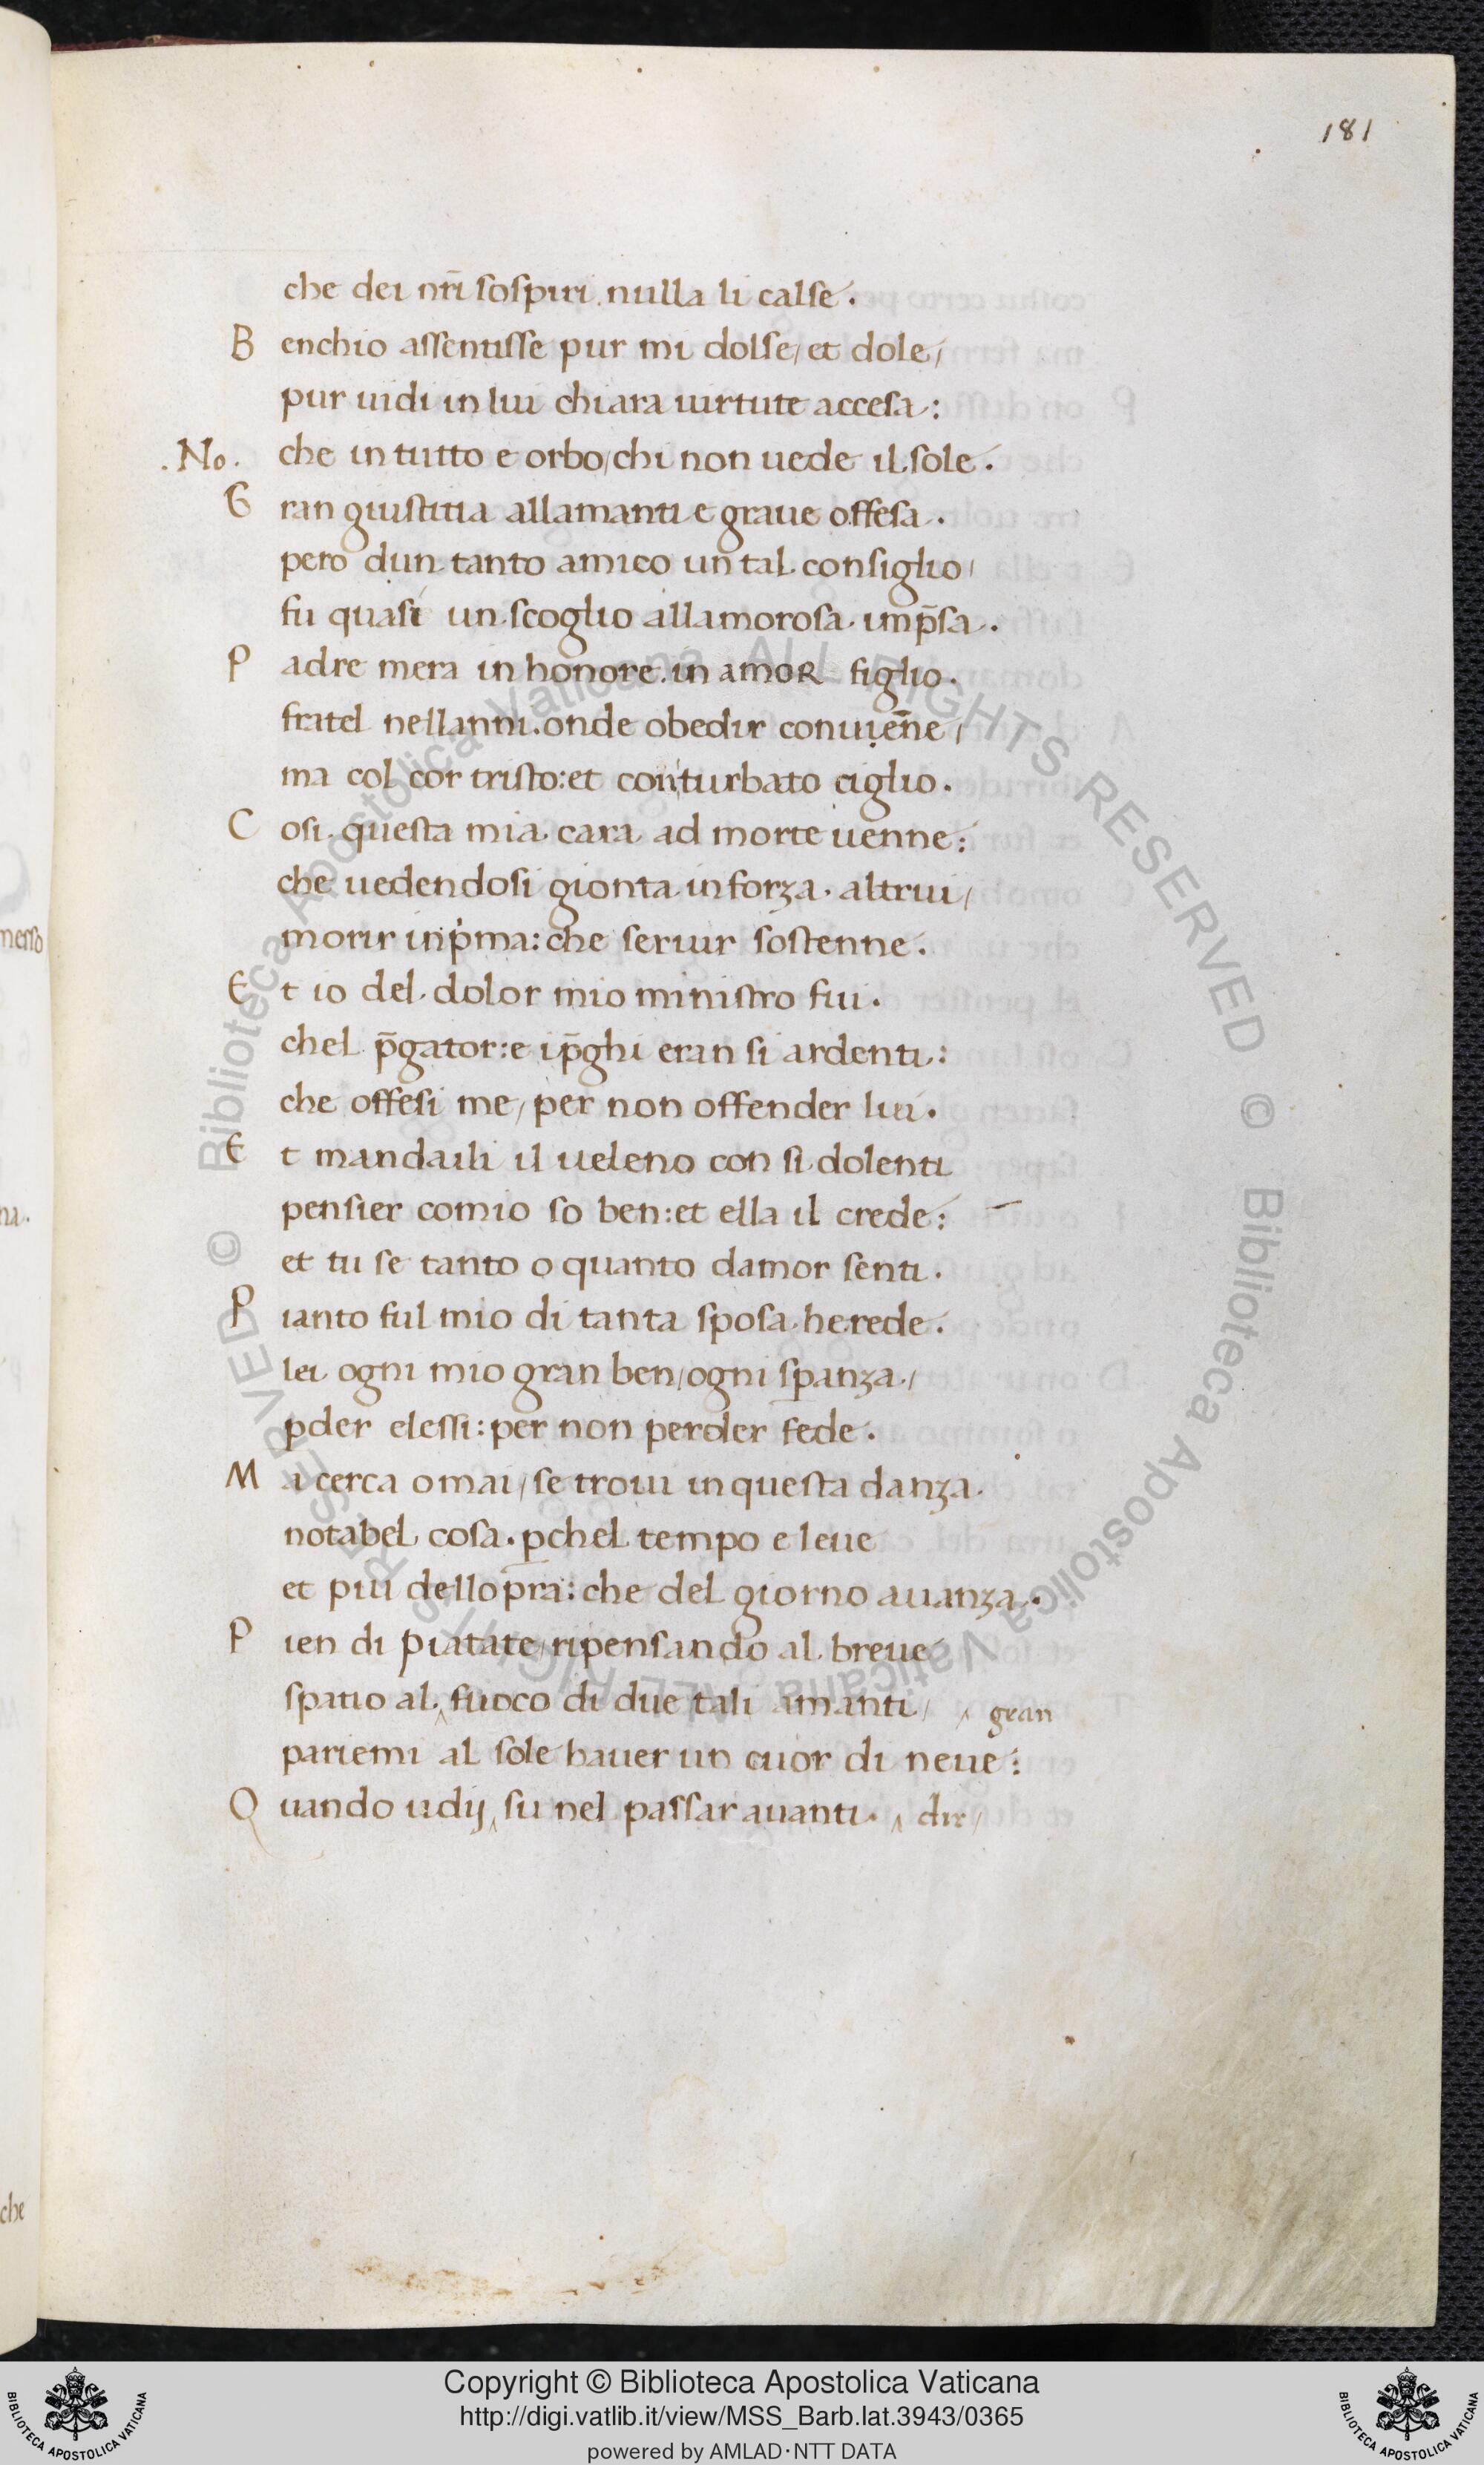 181
che dei nr̄i sospiri nulla li calse.
B enchio assentisse pur mi dolse/ et dole/
pur uidi in lui chiara uirtute accesa:
.No. che in tutto e orbo/ chi non uede il sole.
G ran giustitia allamanti e graue offesa.
pero dun tanto amico un tal consiglio/
fu quasi un scoglio allamorosa imp̄sa.
P adre mera in honore. in amoR figlio.
fratel nellanni. onde obedir conuien̄e/
ma col cor tristo: et conturbato ciglio.
C osi questa mia cara ad morte uenne:
che uedendosi gionta in forza altrui/
morir inp̍ma: che seruir sostenne.
E t io del dolor mio ministro fui.
chel p̄gator: e i p̄ghi eran si ardenti:
che offesi me/ per non offender lui.
E t mandaili il ueleno con si dolenti
pensier comio so ben: et ella il crede:
et tu se tanto o quanto damor senti.
P ianto ful mio di tanta sposa herede.
lei ogni mio gran ben/ ogni sꝑanza/
ꝑder elessi: per non perder fede.
M a cerca omai/ se troui in questa danza
notabel cosa. ꝑchel tempo e leue
et piu dellopra: che del giorno auanza.
P ien di piatate/ ripensando al breue
spatio al ‸ fuoco di due tali amanti/ ‸ gran
pariemi al sole hauer un cuor di neue:
Q uando udij ‸ su nel passar auanti. ‸ dir/
messo
na.
che
© Biblioteca Apostolica Vaticana ALL RIGHTS RESERVED © Biblioteca Apostolica Vaticana ALL RIGHTS RESERVED
Copyright © Biblioteca Apostolica Vaticana
http://digi.vatlib.it/view/MSS_Barb.lat.3943/0365
powered by AMLAD·NTT DATA
BIBLIOTECA APOSTOLICA VATICANA
BIBLIOTECA APOSTOLICA VATICANA